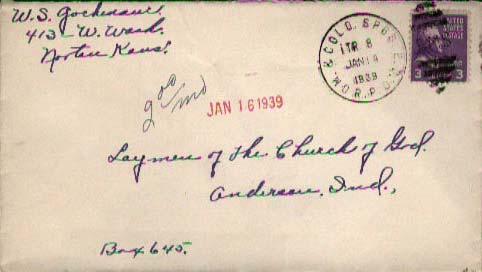 W. S. Gochenour
413 - W. Wash
Norton Kans.
& COLO. SPGS.
TR 8
JAN 14
1939
R.P.O.
UNITED STATES POSTAGE
3 3
JAN 16 1939
Laymen of The Church of God.
Anderson, Ind.,
Box 645.